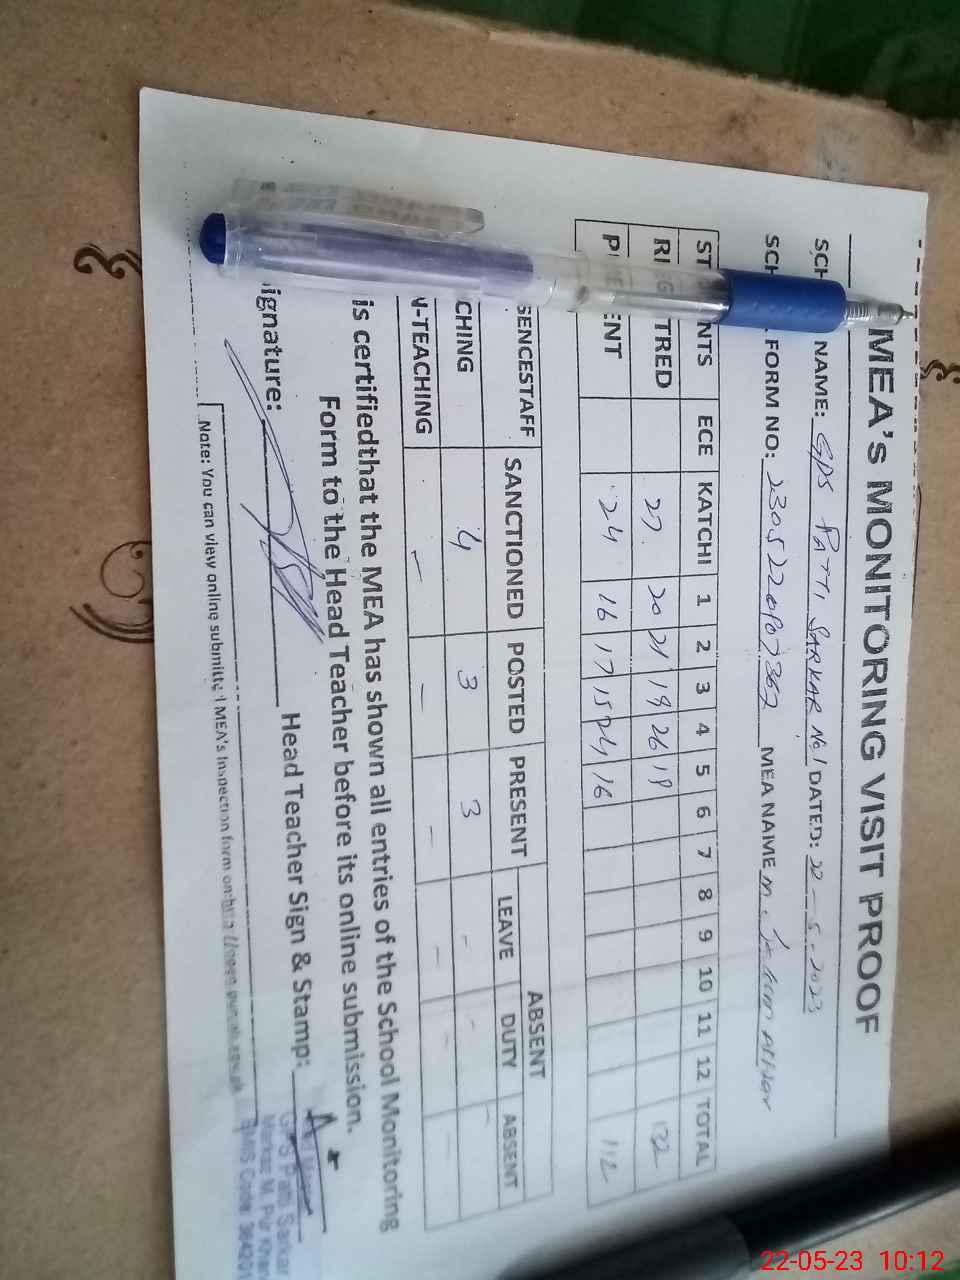 MEA's MONITORING VISIT PROOF
SCH NAME: GPS PATTI SARKAR No.1 DATED: 22-5-2023
SCH FORM NO: MEA NAME M.
ST NTS ECE KATCHI 1 2 3 4 5 6 7 8 9 10 11 12 TOTAL
RIEG TRED 27 20 21 19 26 19 132
P E ENT 24 16 17 15 24 16 112
SENCESTAFF SANCTIONED POSTED PRESENT ABSENT
LEAVE DUTY ABSENT
CHING 4 3 3 - - -
N-TEACHING - - - - - -
is certifiedthat the MEA has shown all entries of the School Monitoring
Form to the Head Teacher before its online submission.
ignature: Head Teacher Sign & Stamp:
GPS Patti Sarkar
Markaz M. Pur Khan
EMIS Code
Note: You can view online submitted MEA's Inspection form on:
22-05-23 10:12